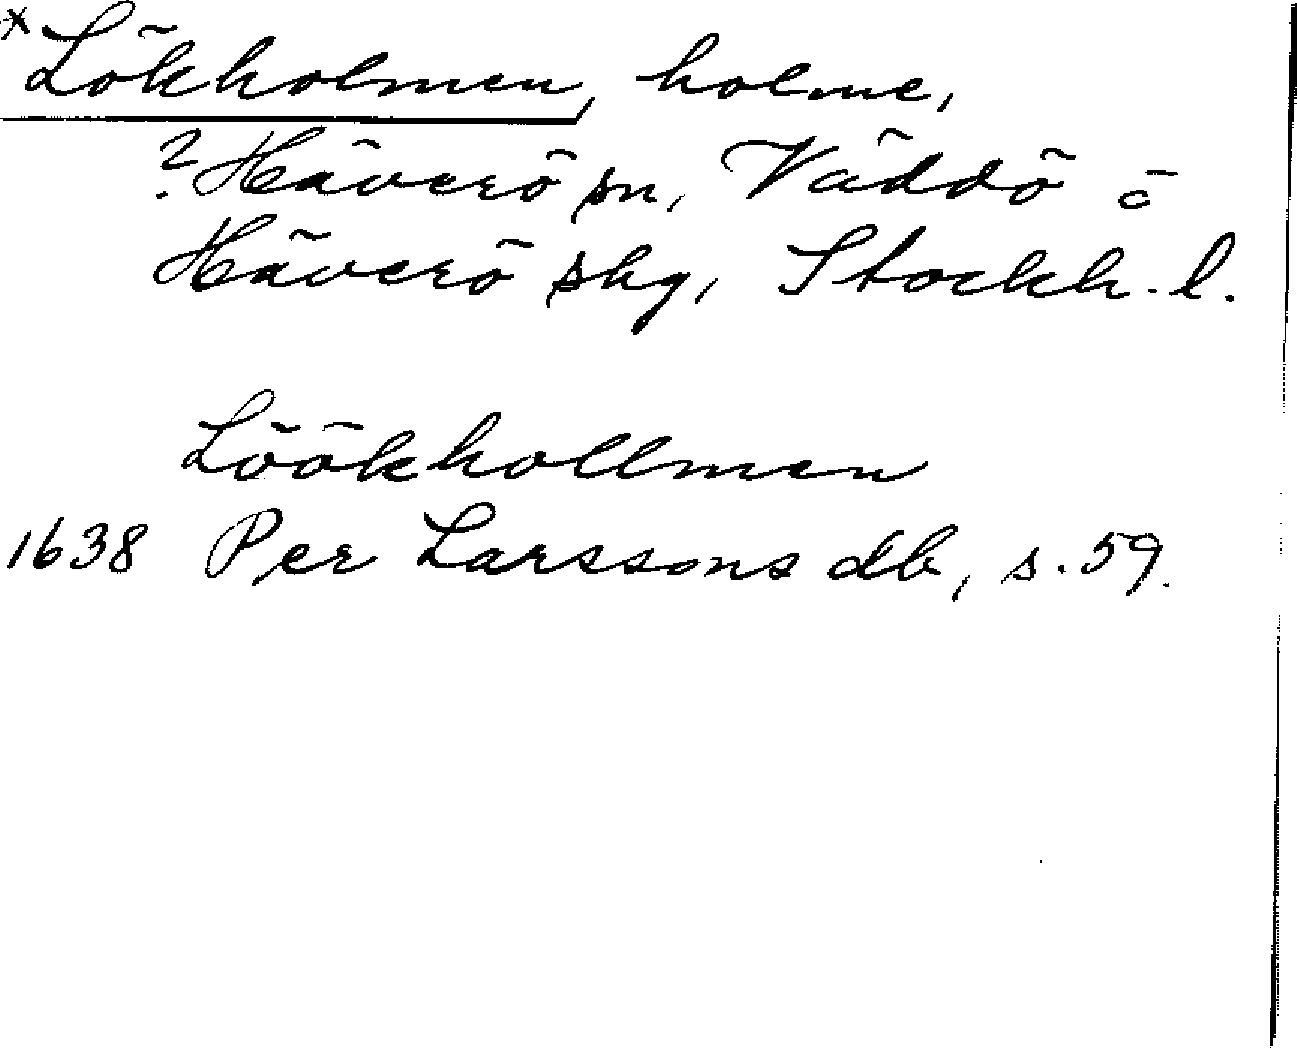 *Lökholmen, holme,
? Häverö sn, Väddö o
Häverö skg, Stockh. l.
Löökhollmen
1638 Per Larssons db, s. 59.